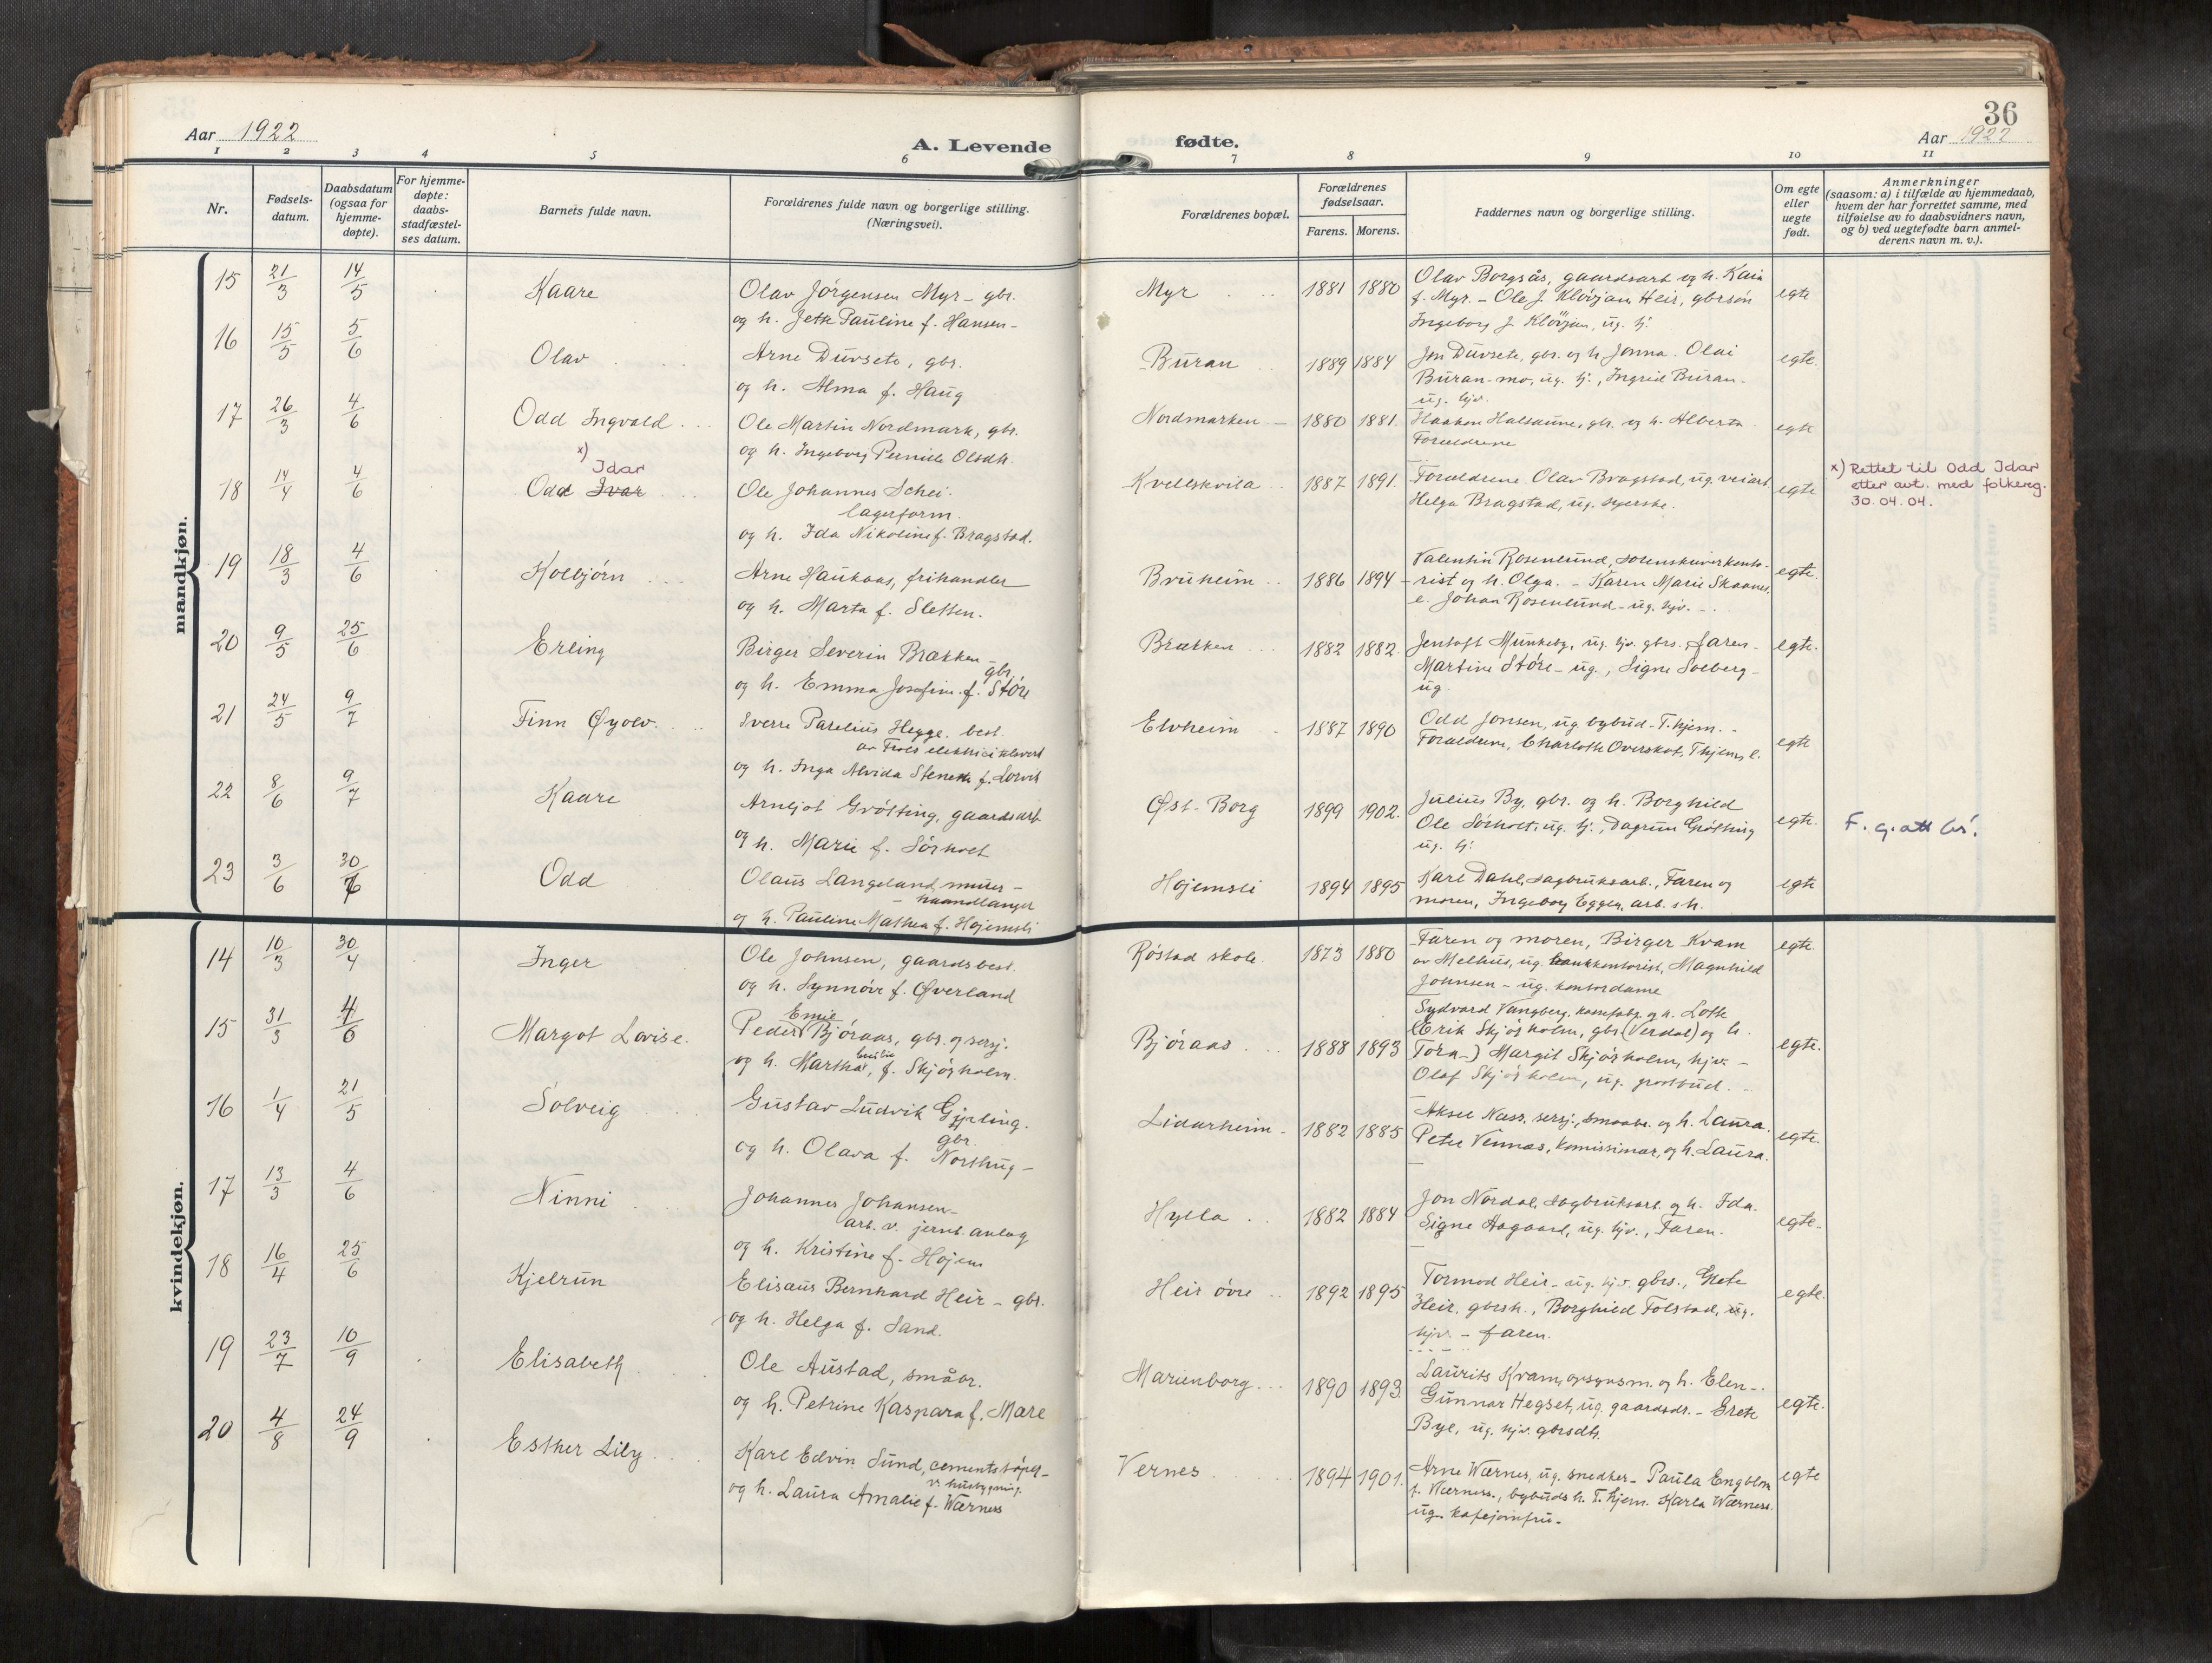 36
Aar 1922
A. Levende
fødte.
Aar 1922
1 2 3 4 5 6 7 8 9 10 11
Nr.
Fødsels-datum.
Daabsdatum (ogsaa for hjemme-døpte).
For hjemme-døpte: daabs-stadfæstel-ses datum.
Barnets fulde navn.
Forældrenes fulde navn og borgerlige stilling. (Næringsvei).
Forældrenes bopæl.
Forældrenes fødselsaar.
Farens. Morens.
Faddernes navn og borgerlige stilling.
Om egte eller uegte født.
Anmerkninger (saasom: a) i tilfælde av hjemmedaab, hvem der har forrettet samme, med tilføielse av to daabsvidners navn, og b) ved uegtefødte barn anmel-derens navn m. v.).
mandkjøn.
15 21/3 14/5 Kaare
Olav Jörgensen Myr - gbr.
og h. Pauline f. Hansen -
Myr 1881 1880
Olav Borgsås, gaardsarb og h. Kaia
f. Myr. - Ole J. Klövjan Heir, gbrsön
Ingeborg J. Klövjan, ug. tj.
egte
16 15/5 5/6 Olav
Arne Duvsete, gbr.
og h. Alma f. Haug
Buran 1889 1884
Jon Duvsete, gbr. og h. Jonna. Olai
Buran-mo, ug. tj., Ingrid Buran -
ug. hjv.
egte.
17 26/3 4/6 Odd Ingvald
Ole Martin Nordmark, gbr.
og h. Ingeborg Pernille Olsdtr.
Nordmarken 1880 1881.
Haakon Halsaune, gbr. og h. Alberta
Forældrene
egte
18 14/4 4/6 x) Idar
Odd Ivar
Ole Johannes Schei.
lagerform.
og h. Ida Nikoline f. Bragstad.
Kvelskvila 1887 1891.
Forældrene Olav Bragstad, ug. veiarb
Helga Bragstad, ug. syerske.
egte
x) Rettet til Odd Idar
etter avt. med folkereg.
30.04.04.
19 18/3 4/6 Kolbjörn
Arne Haukaas, frihandler
og h. Marta f. Sletten.
Bruheim 1886 1894
Valentin Rosenlund, sorenskriverkonto-
rist og h. Olga. - Karen Marie Skaanes,
e. Johan Rosenlund - ug. hjv.
egte.
20 9/5 25/6 Erling
Birger Severin Brækken -
gbr.
og h. Emma Josefine f. Störe
Brækken 1882 1882.
Jentoft Munkeby, ug. hjv. gbrs. Faren -
Martine Störe - ug., Signe Solberg -
ug.
egte.
21 24/5 9/7 Finn Øyolv.
Sverre Parelius Hegge. best.
av elektricitetsverk
og h. Inga Alvida f. Lorvik
Elvheim 1887 1890
Odd Jonsen, ug. bybud - T.hjem. -
Forældrene, Charlotte Overskot, T.hjem, e.
egte
22 8/6 9/7 Kaare
Arnljot Grötting, gaardsarb
og h. Marie f. Sörholt
Øst-Borg 1899 1902.
Julius By, gbr. og h. Borghild
Ole Sörholt, ug. tj., Dagrun Grötting
ug. tj.
egte.
23 3/6 30/7 Odd
Olaus Langeland, murer -
haandlanger
og h. Pauline Mathea f. Højemsli
Højemsli 1894 1895
Karl Dahl, sagbruksarb., Faren og
moren, Ingeborg Eggen, arb. s h.
egte
kvindekjøn.
14 10/3 30/4 Inger
Ole Johnsen, gaardsbest.
og h. Synnöve f. Øverland
Röstad skole. 1873 1880
Faren og moren, Birger Kvam
av Melhus, ug. bankkontorist, Magnhild
Johnsen - ug. kontordame
egte.
15 31/3 4/6 Margot Lovise.
Peder Björaas, gbr. og sersj.
og h. Martha, f. Skjörholm.
Björaas 1888 1893
Sydvard Vangberg, og h. Lotte
(Erik Skjörholm, gbr. (Verdal) og h.
Tora -) Margit Skjörholm, hjv. -
Olaf Skjörholm, ug. postbud.
egte.
16 1/4 21/5 Solveig
Gustav Ludvik Gipling.
gbr.
og h. Olava f. Northug -
Lidarheim 1882 1885
Aksel Næss, sersj., smaabr. og h. Laura.
Peter Vennæs, komissionær, og h. Laura.
egte.
17 13/3 4/6 Ninni
Johannes Johansen -
arb. v. jernb. anlæg
og h. Kristine f. Højem
Hylla 1882 1884
Jon Nordal, sagbruksarb. og h. Ida.
Signe Aagaard, ug. hjv., Faren.
egte.
18 16/4 25/6 Kjelrun
Elisæus Bernhard Heir - gbr.
og h. Helga f. Sand.
Heir övre 1892 1895
Tormod Heir - ug. hjv. gbrs., Grete
Heir, gbrsh., Borghild Folstad, ug.
hjv. - faren.
egte.
19 23/7 10/9 Elisabeth
Ole Austad, småbr.
og h. Petrine Kaspara f. Mære
Marienborg 1890 1893
Laurits Kvam, opsynsm. og h. Elen -
Gunnar Hegset, ug. gaardsdr. - Grete
Bye, ug. hjv. gbrsdtr.
egte.
20 4/8 24/9 Esther Lily
Karl Edvin Sund, cementstöper
v. husbygning.
og h. Laura Amalie f. Wærness
Vernes 1894 1901.
Arne Wærnes, ug. snedker - Paula Engblom
f. Værness., bybuds h. T.hjem. Karla Wærness
ug. kafejomfru -
egte